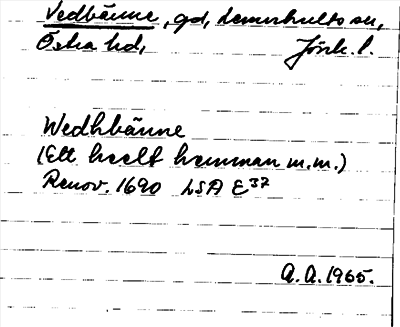 Vedbänne, gd, Lemnhults sn,
Östra hd, Jönk. l.
Wedhbänne
(Ett heelt hemman m.m.)
Renov. 1690 LSA E37
A.A. 1965.